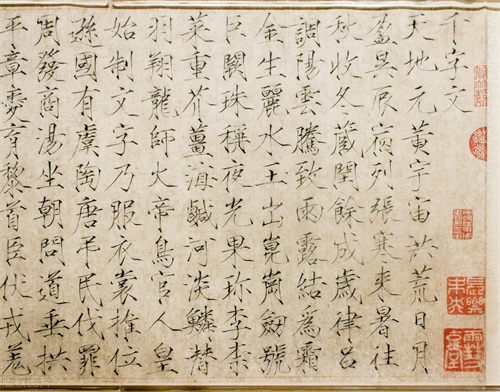 千字文
天地元黃宇宙洪荒日月
盈昃辰宿列張寒来暑往
秋收冬藏閏餘成歲律呂
調陽雲騰致雨露結為霜
金生麗水玉出崑崗劔號
巨闕珠稱夜光果珍李柰
菜重芥薑海鹹河淡鱗潛
羽翔龍師火帝鳥官人皇
始制文字乃服衣裳推位
遜國有虞陶唐弔民伐罪
周發商湯坐朝問道垂拱
平章愛育黎首臣伏戎羌